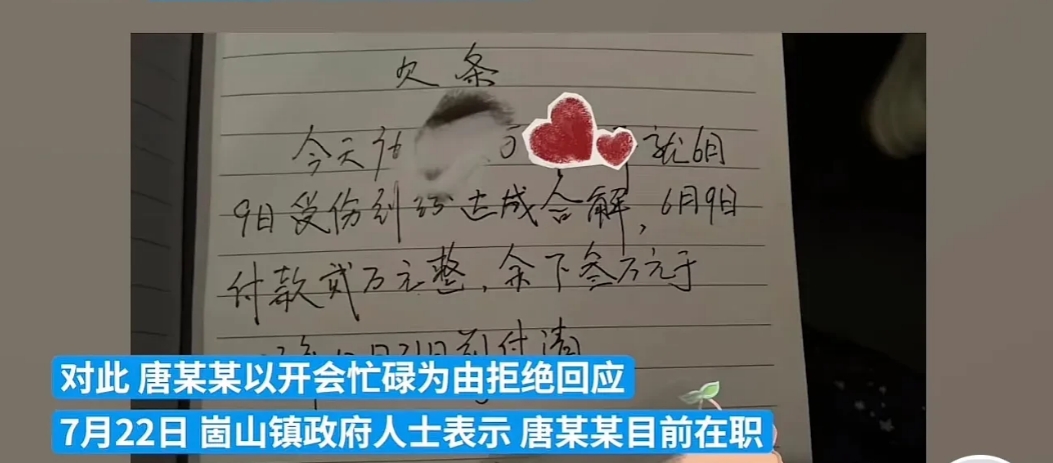 欠条
今天
就6月
9日受伤纠纷达成合解，6月9日
付款贰万元整，余下叁万元于
月31日前付清
对此 唐某某以开会忙碌为由拒绝回应
7月22日 崮山镇政府人士表示 唐某某目前在职